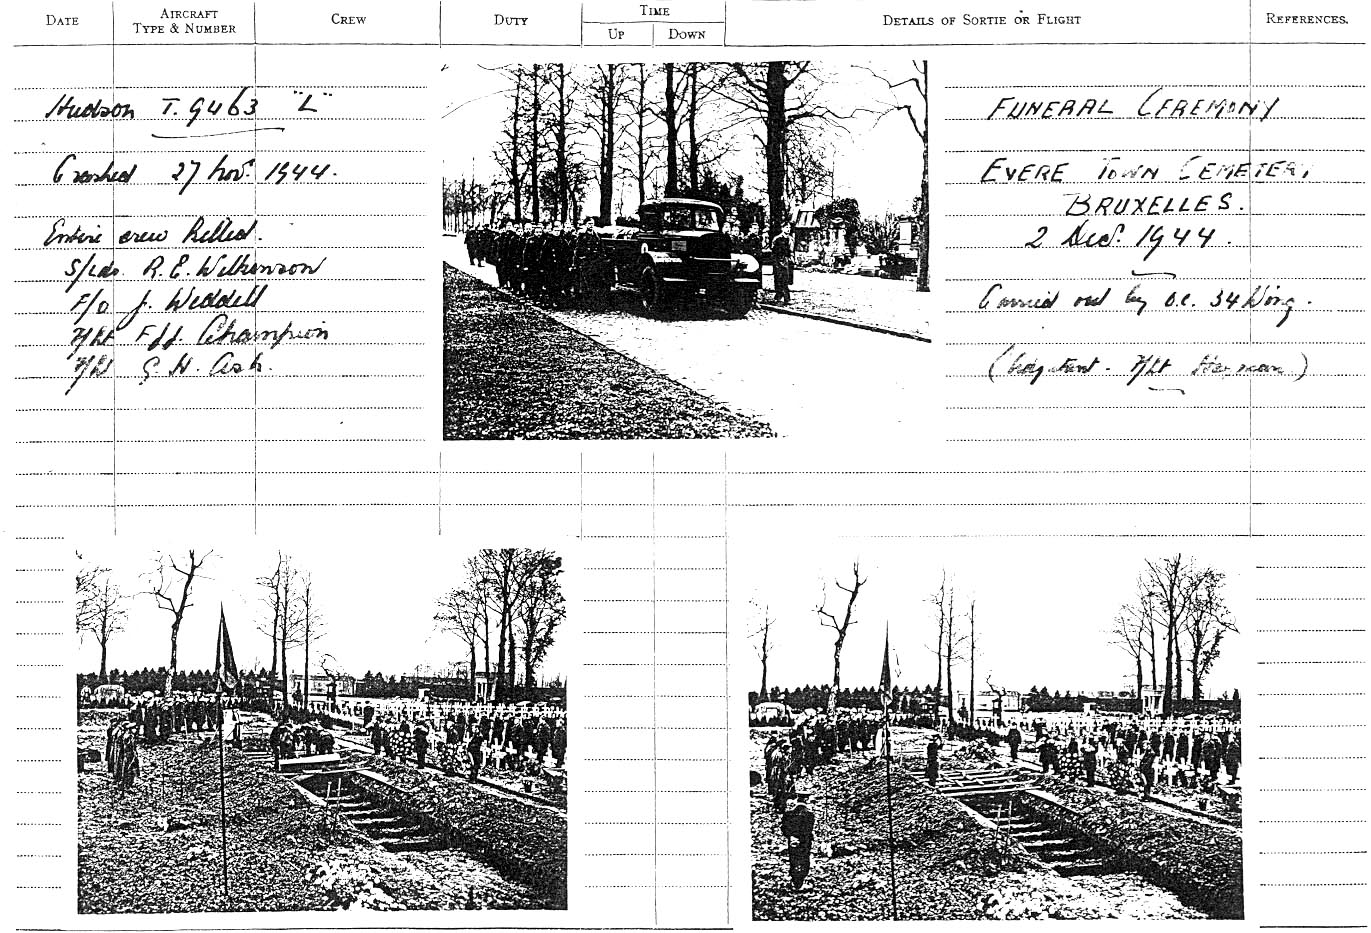 DATE
AIRCRAFT
TYPE & NUMBER
CREW
DUTY
TIME
UP
DOWN
DETAILS OF SORTIE OR FLIGHT
REFERENCES.
Hudson T. 9463 "L"
Crashed 27 Nov. 1944.
Entire crew killed.
S/Ldr. R. E. Wilkinson
F/O J. Weddell
F/Lt F. J. J. Champion
G. H. Ash.
FUNERAL CEREMONY
EVERE TOWN CEMETERY
BRUXELLES.
2 Dec. 1944.
Carried out by O.C. 34 Wing.
F/Lt